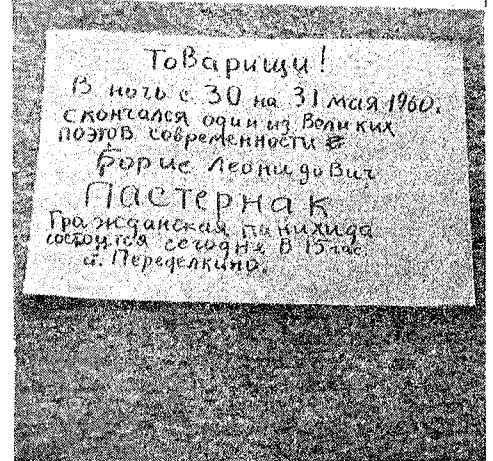 Товарищи!
В ночь с 30 на 31 мая 1960.
скончался один из Великих
поэтов современности
Борис Леонидович
Пастернак
Гражданская панихида
состоится сегодня в 15 час.
ст. Переделкино.